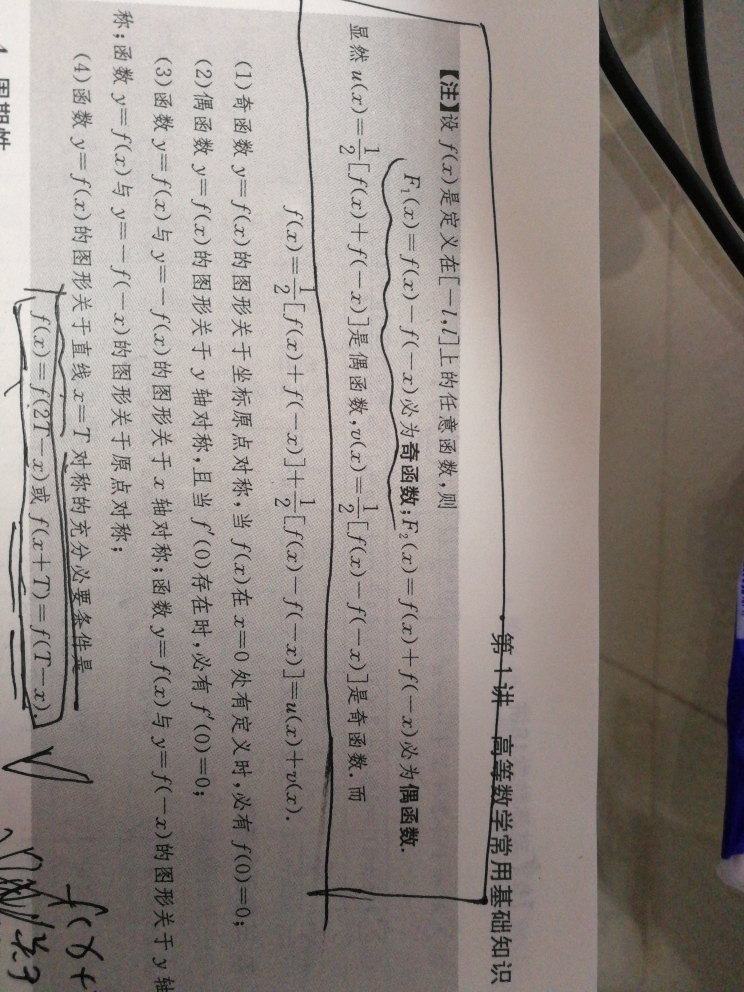 第1讲 高等数学常用基础知识
【注】设 f(x)是定义在[-l,l]上的任意函数,则
F₁(x)=f(x)-f(-x)必为奇函数;F₂(x)=f(x)+f(-x)必为偶函数.
显然 u(x)=1/2[f(x)+f(-x)]是偶函数,v(x)=1/2[f(x)-f(-x)]是奇函数.而
f(x)=1/2[f(x)+f(-x)]+1/2[f(x)-f(-x)]=u(x)+v(x).
(1)奇函数 y=f(x)的图形关于坐标原点对称,当 f(x)在 x=0 处有定义时,必有 f(0)=0;
(2)偶函数 y=f(x)的图形关于 y 轴对称,且当 f′(0)存在时,必有 f′(0)=0;
(3)函数 y=f(x)与 y=-f(x)的图形关于 x 轴对称;函数 y=f(x)与 y=f(-x)的图形关于 y 轴
称;函数 y=f(x)与 y=-f(-x)的图形关于原点对称;
(4)函数 y=f(x)的图形关于直线 x=T 对称的充分必要条件是
f(x)=f(2T-x)或 f(x+T)=f(T-x).
f(x+
4.周期性